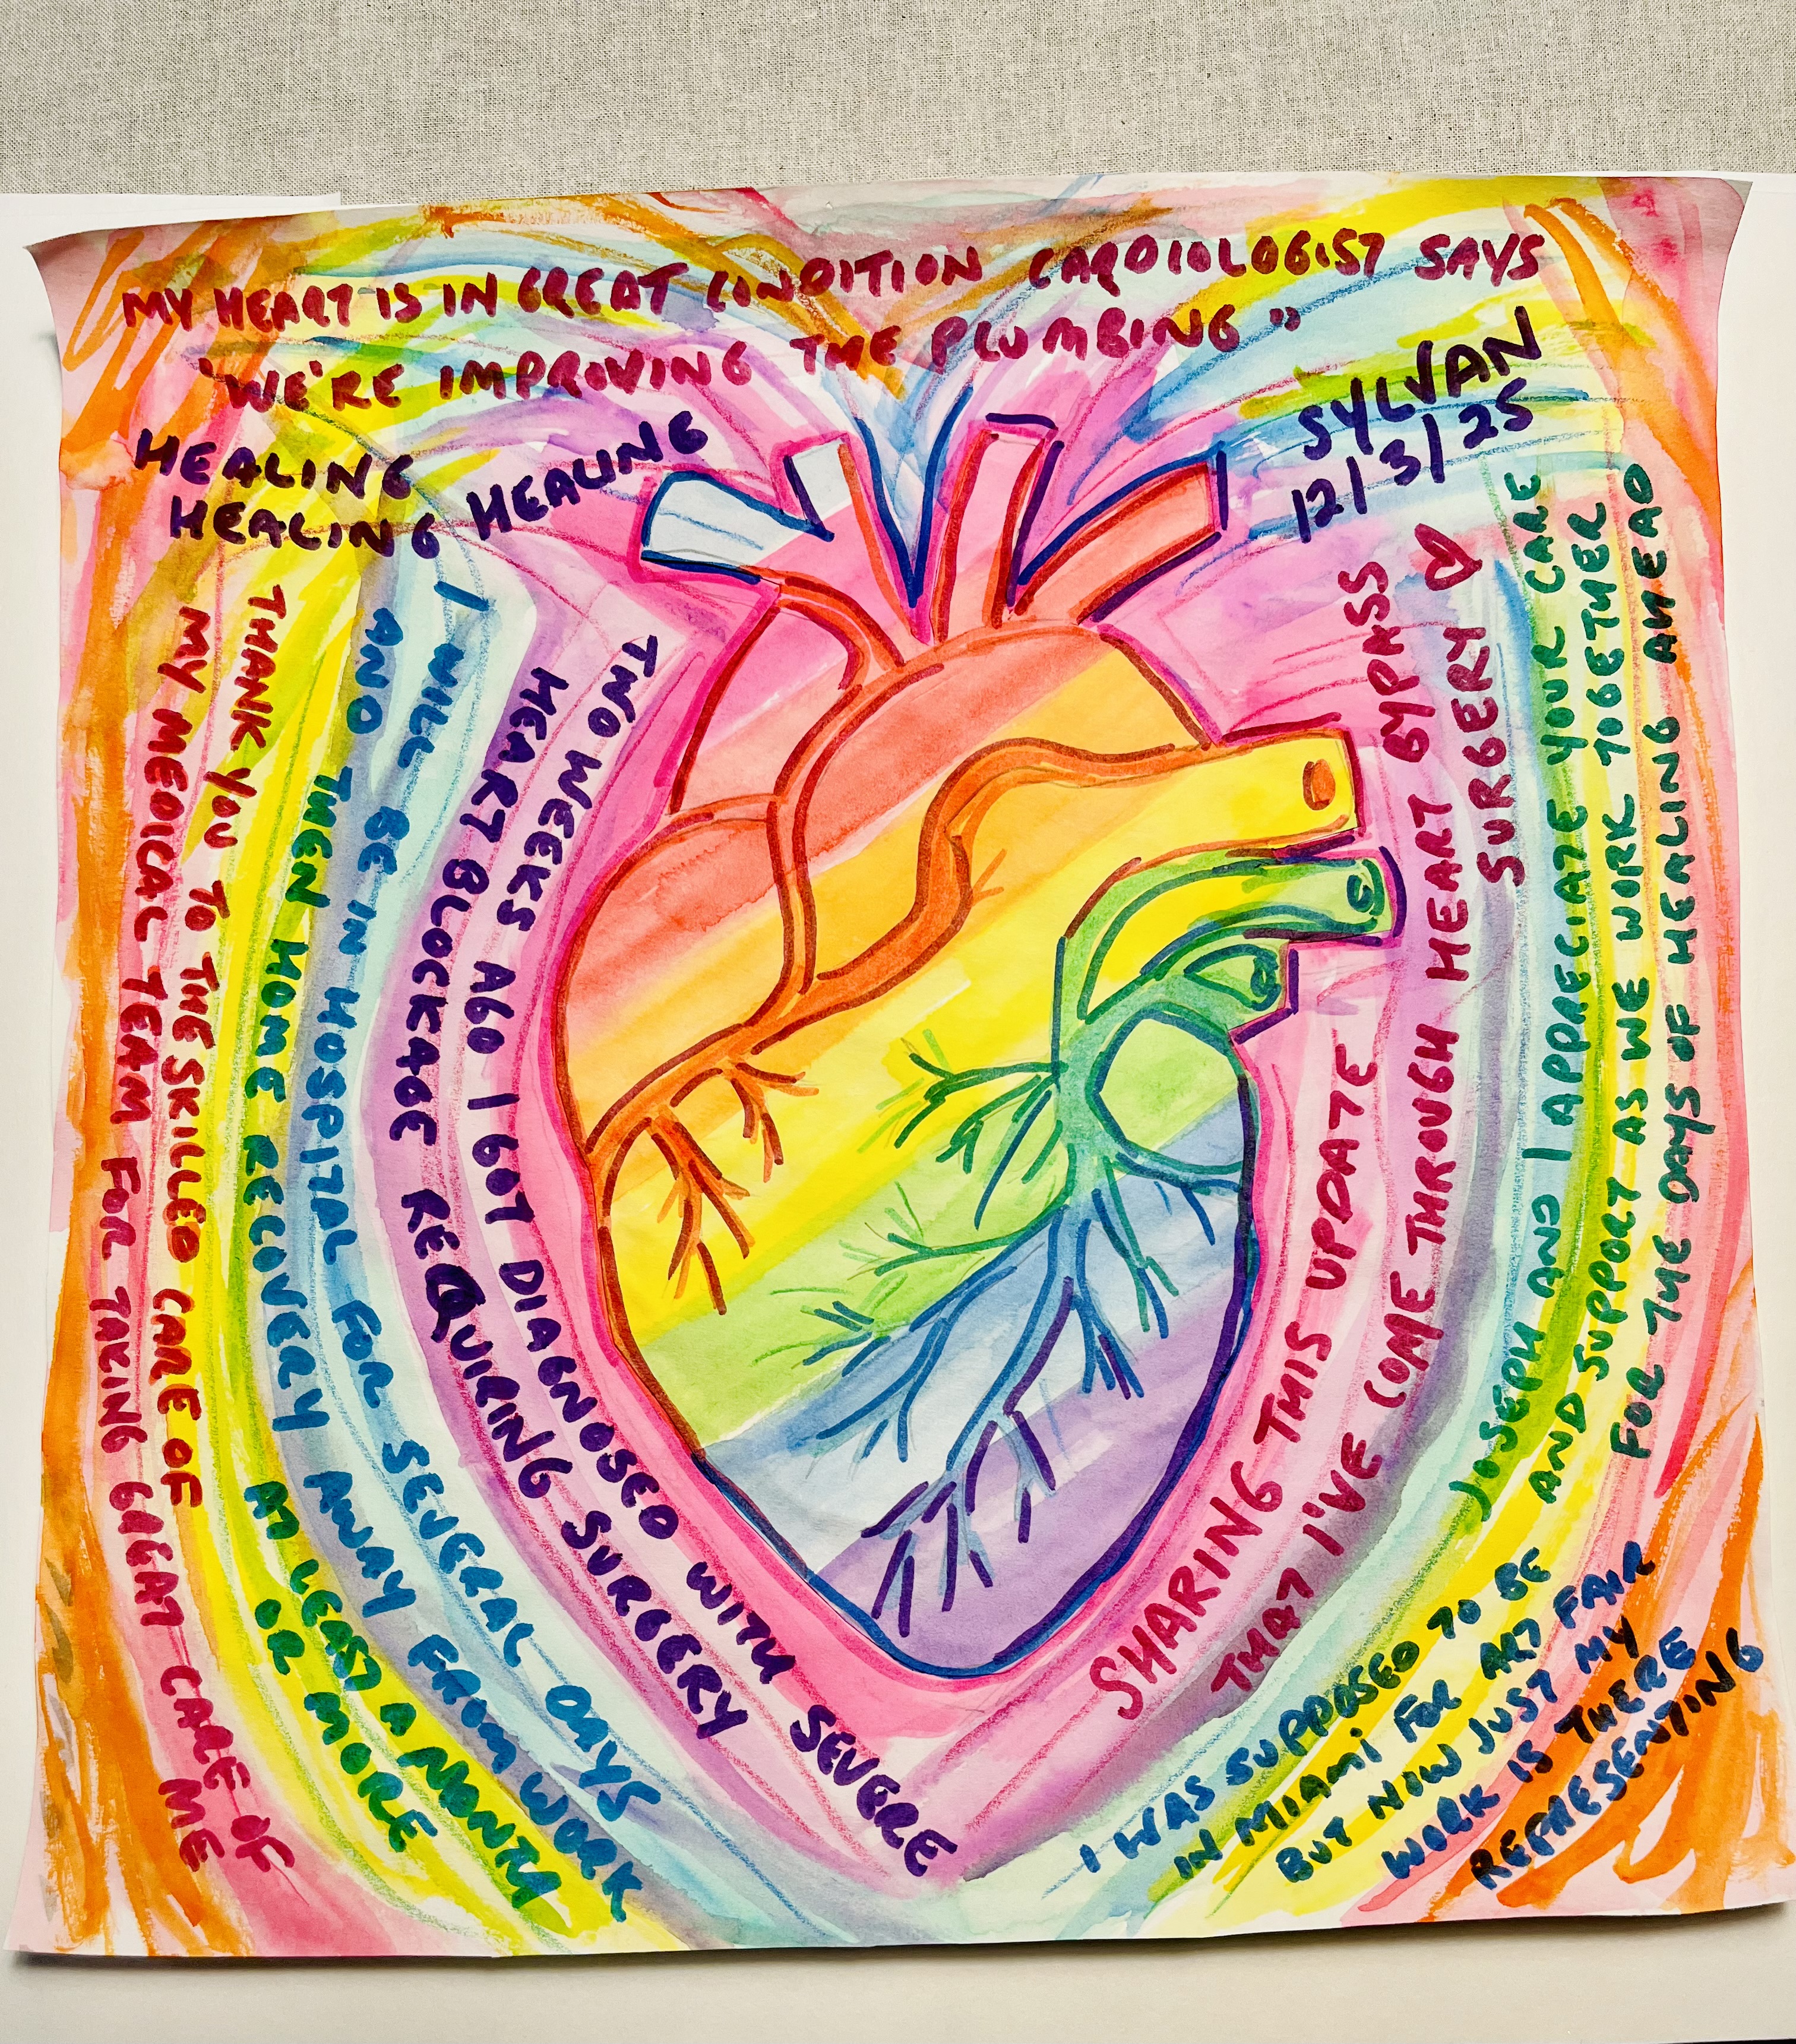 MY HEART IS IN GREAT CONDITION CARDIOLOGIST SAYS
"WE'RE IMPROVING THE PLUMBING"
SYLVAN
12/3/25
HEALING
HEALING HEALING
TWO WEEKS AGO I GOT DIAGNOSED WITH SEVERE
HEART BLOCKAGE REQUIRING SURGERY
I WILL BE IN HOSPITAL FOR SEVERAL DAYS
AND THEN HOME RECOVERY AWAY FROM WORK
AT LEAST A MONTH
OR MORE
THANK YOU TO THE SKILLED CARE OF
MY MEDICAL TEAM FOR TAKING GREAT CARE OF
ME
SHARING THIS UPDATE
THAT I'VE COME THROUGH HEART BYPASS
SURGERY ♡
JOSEPH AND I APPRECIATE YOUR CARE
AND SUPPORT AS WE WORK TOGETHER
FOR THE DAYS OF HEALING AHEAD
I WAS SUPPOSED TO BE
IN MIAMI FOR ART FAIR
BUT NOW JUST MY
WORK IS THERE
REPRESENTING